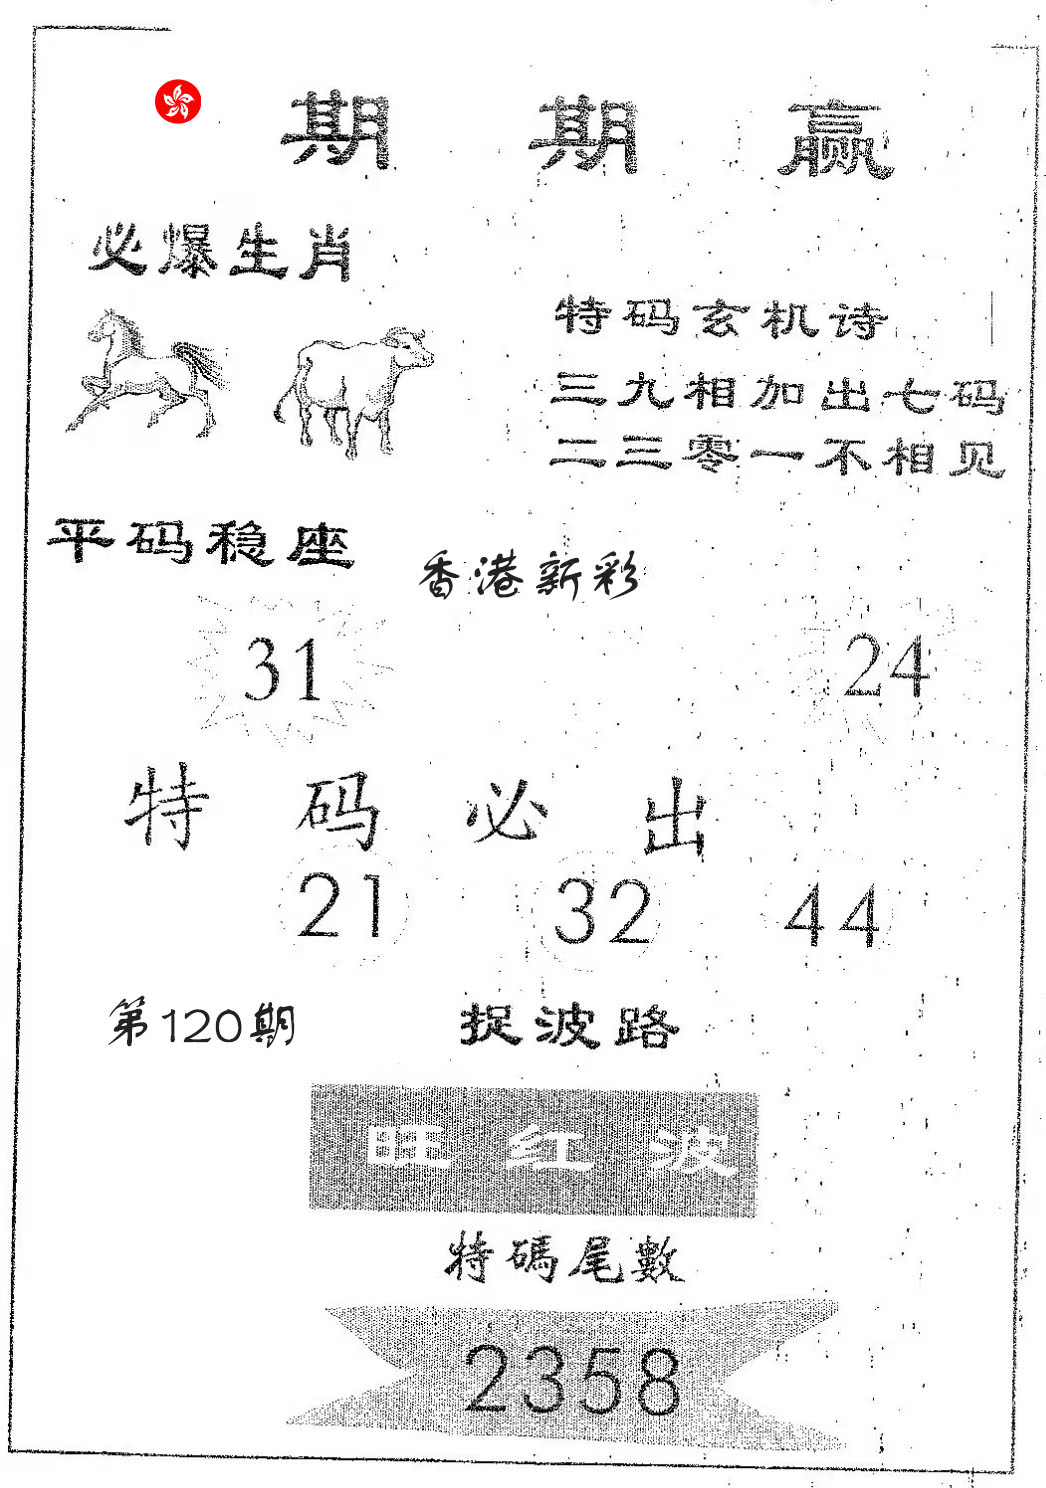 期期赢
必爆生肖
特码玄机诗
三九相加出七码
二三零一不相见
平码稳座
香港新彩
31
24
特码必出
21 32 44
第120期
捉波路
旺红波
特碼尾數
2358